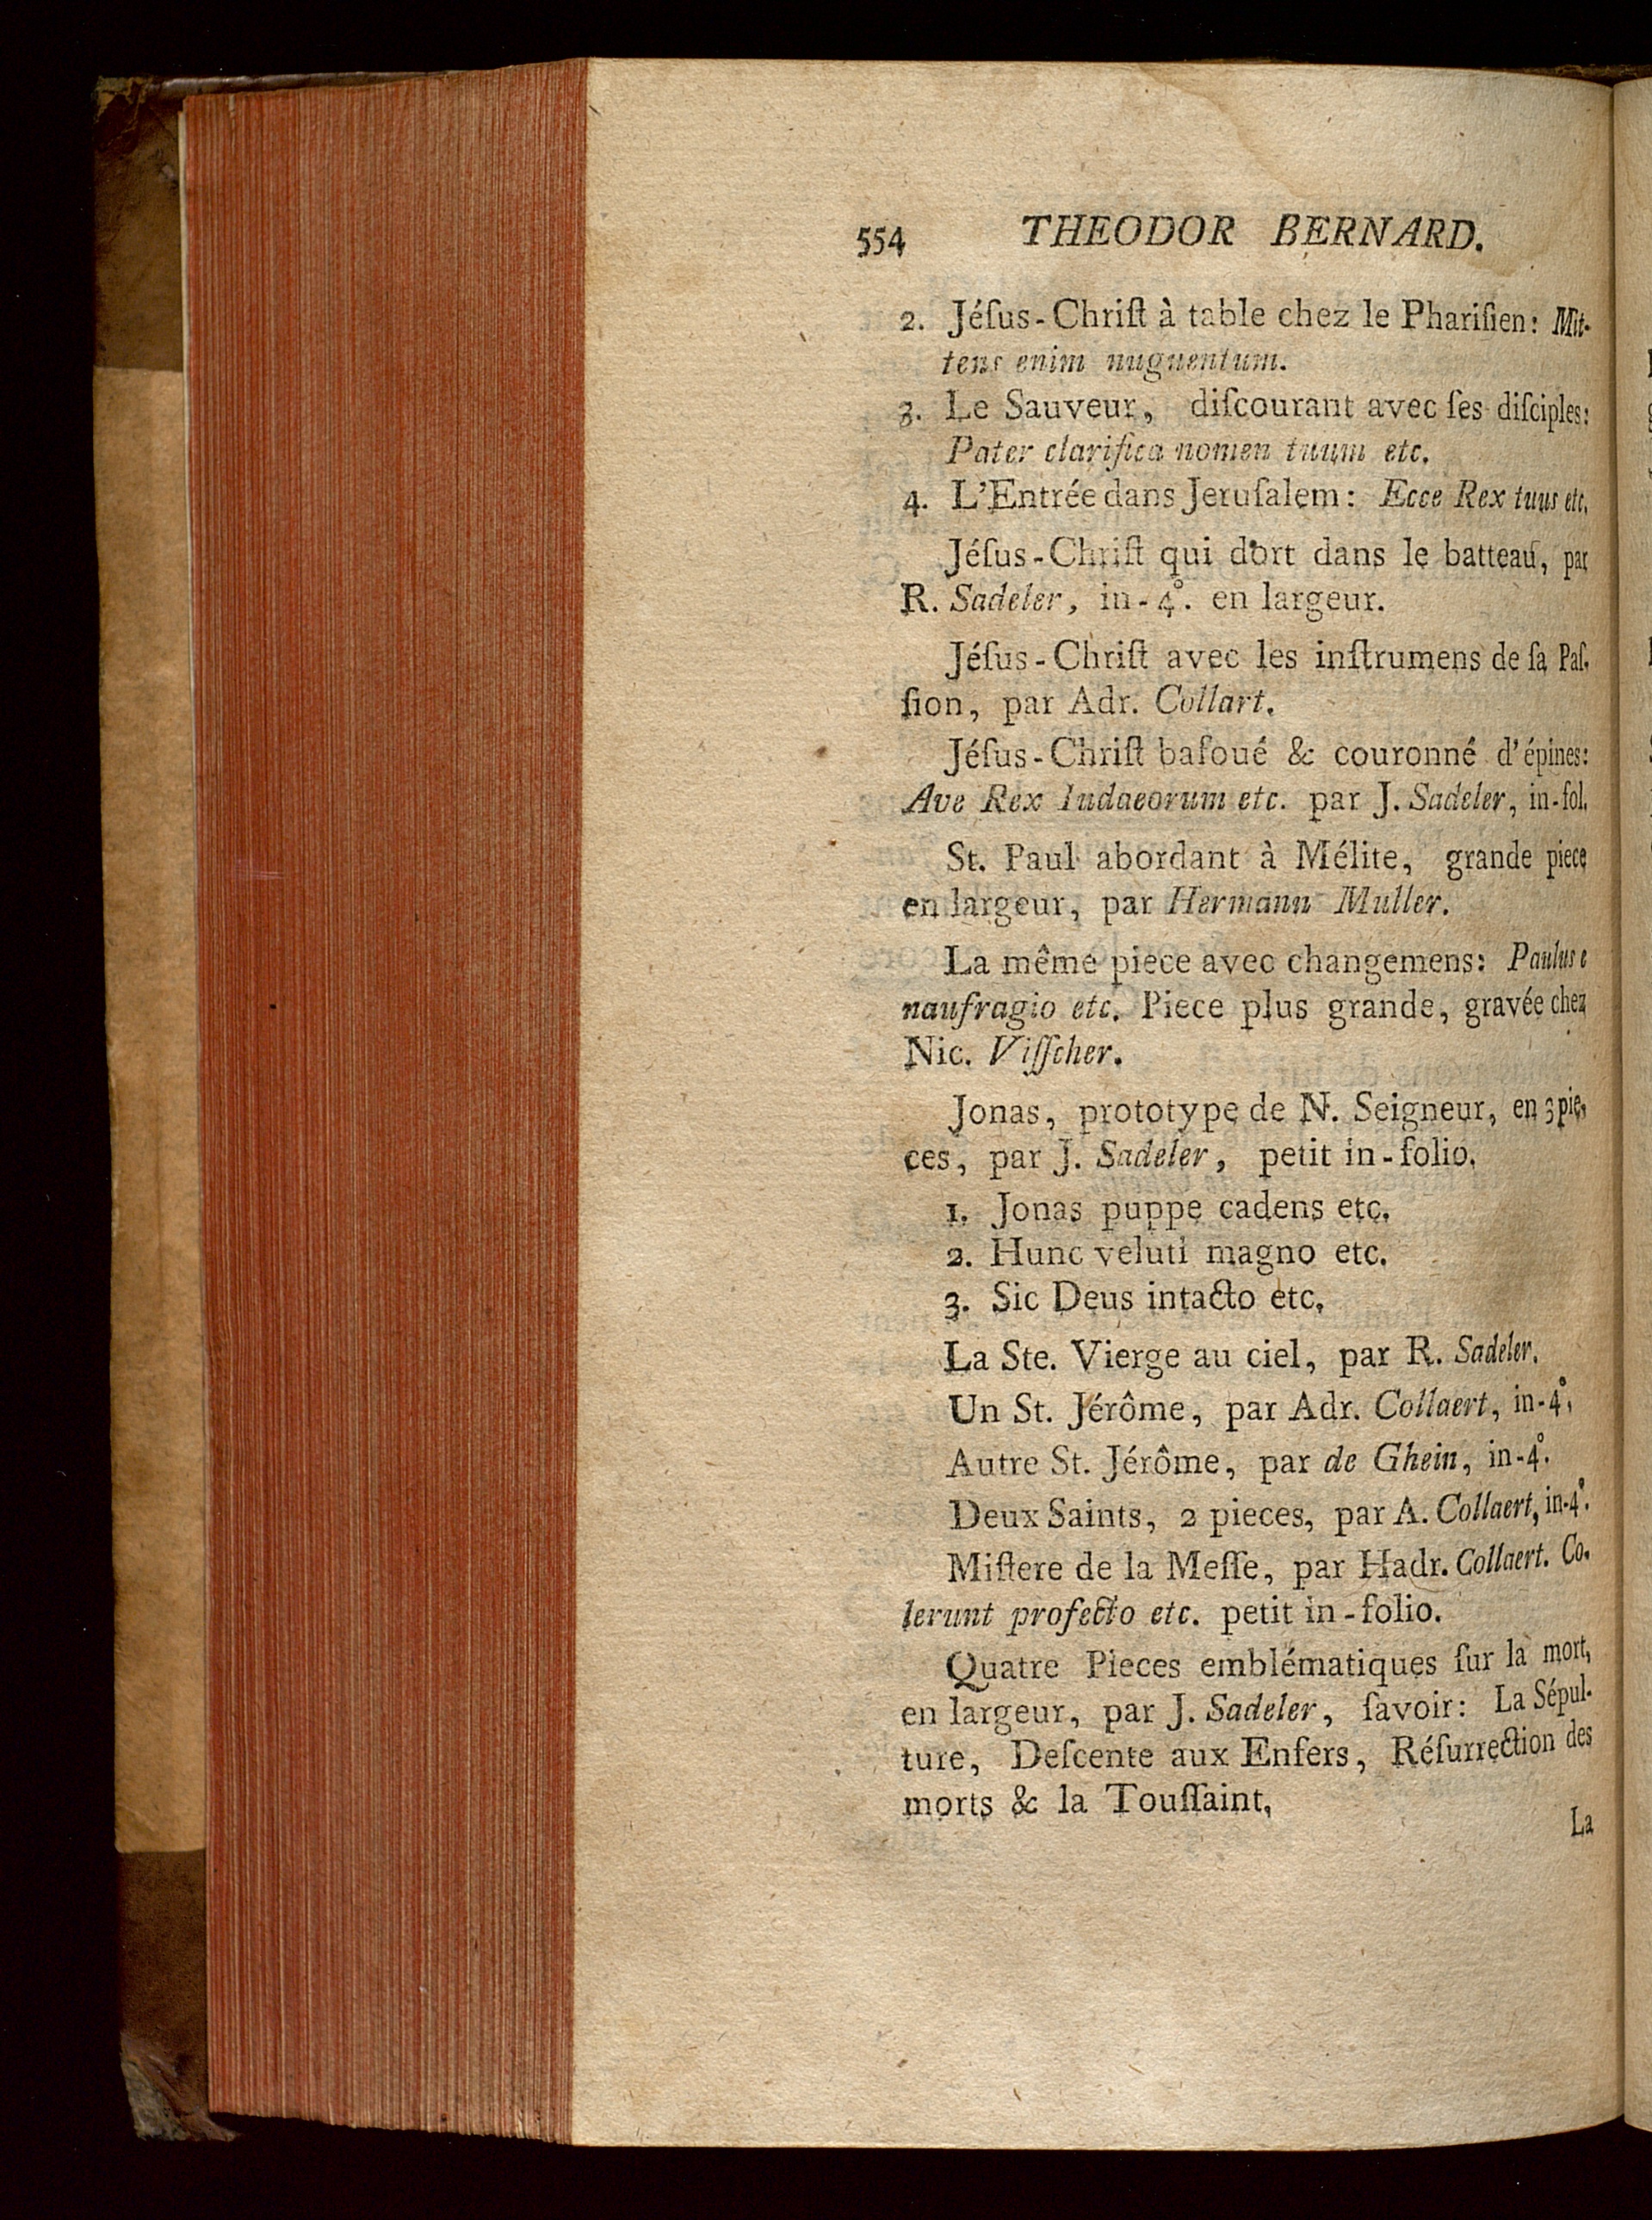 554 THEODOR BERNARD.
2. Jéſus-Chriſt à table chez le Phariſien: Mit-
tens enim nuguentum.
3. Le Sauveur, diſcourant avec ſes diſciples:
Pater clarifica nomen tuum etc.
4. L'Entrée dans Jeruſalem: Ecce Rex tuus etc.
Jéſus-Chriſt qui dort dans le batteau, par
R. Sadeler, in-4°. en largeur.
Jéſus-Chriſt avec les inſtrumens de ſa Paſ-
ſion, par Adr. Collart.
Jéſus-Chriſt bafoué & couronné d'épines:
Ave Rex Iudaeorum etc. par J. Sadeler, in-fol.
St. Paul abordant à Mélite, grande piece
en largeur, par Hermann Muller.
La même piece avec changemens: Paulus e
naufragio etc. Piece plus grande, gravée chez
Nic. Viſſcher.
Jonas, prototype de N. Seigneur, en 3 pie-
ces, par J. Sadeler, petit in-folio.
1. Jonas puppe cadens etc.
2. Hunc veluti magno etc.
3. Sic Deus intacto etc.
La Ste. Vierge au ciel, par R. Sadeler.
Un St. Jérôme, par Adr. Collaert, in-4°.
Autre St. Jérôme, par de Ghein, in-4°.
Deux Saints, 2 pieces, par A. Collaert, in-4°.
Miſtere de la Meſſe, par Hadr. Collaert. Co-
lerunt profecto etc. petit in-folio.
Quatre Pieces emblématiques ſur la mort,
en largeur, par J. Sadeler, ſavoir: La Sépul-
ture, Deſcente aux Enfers, Réſurrection des
morts & la Touſſaint,
La